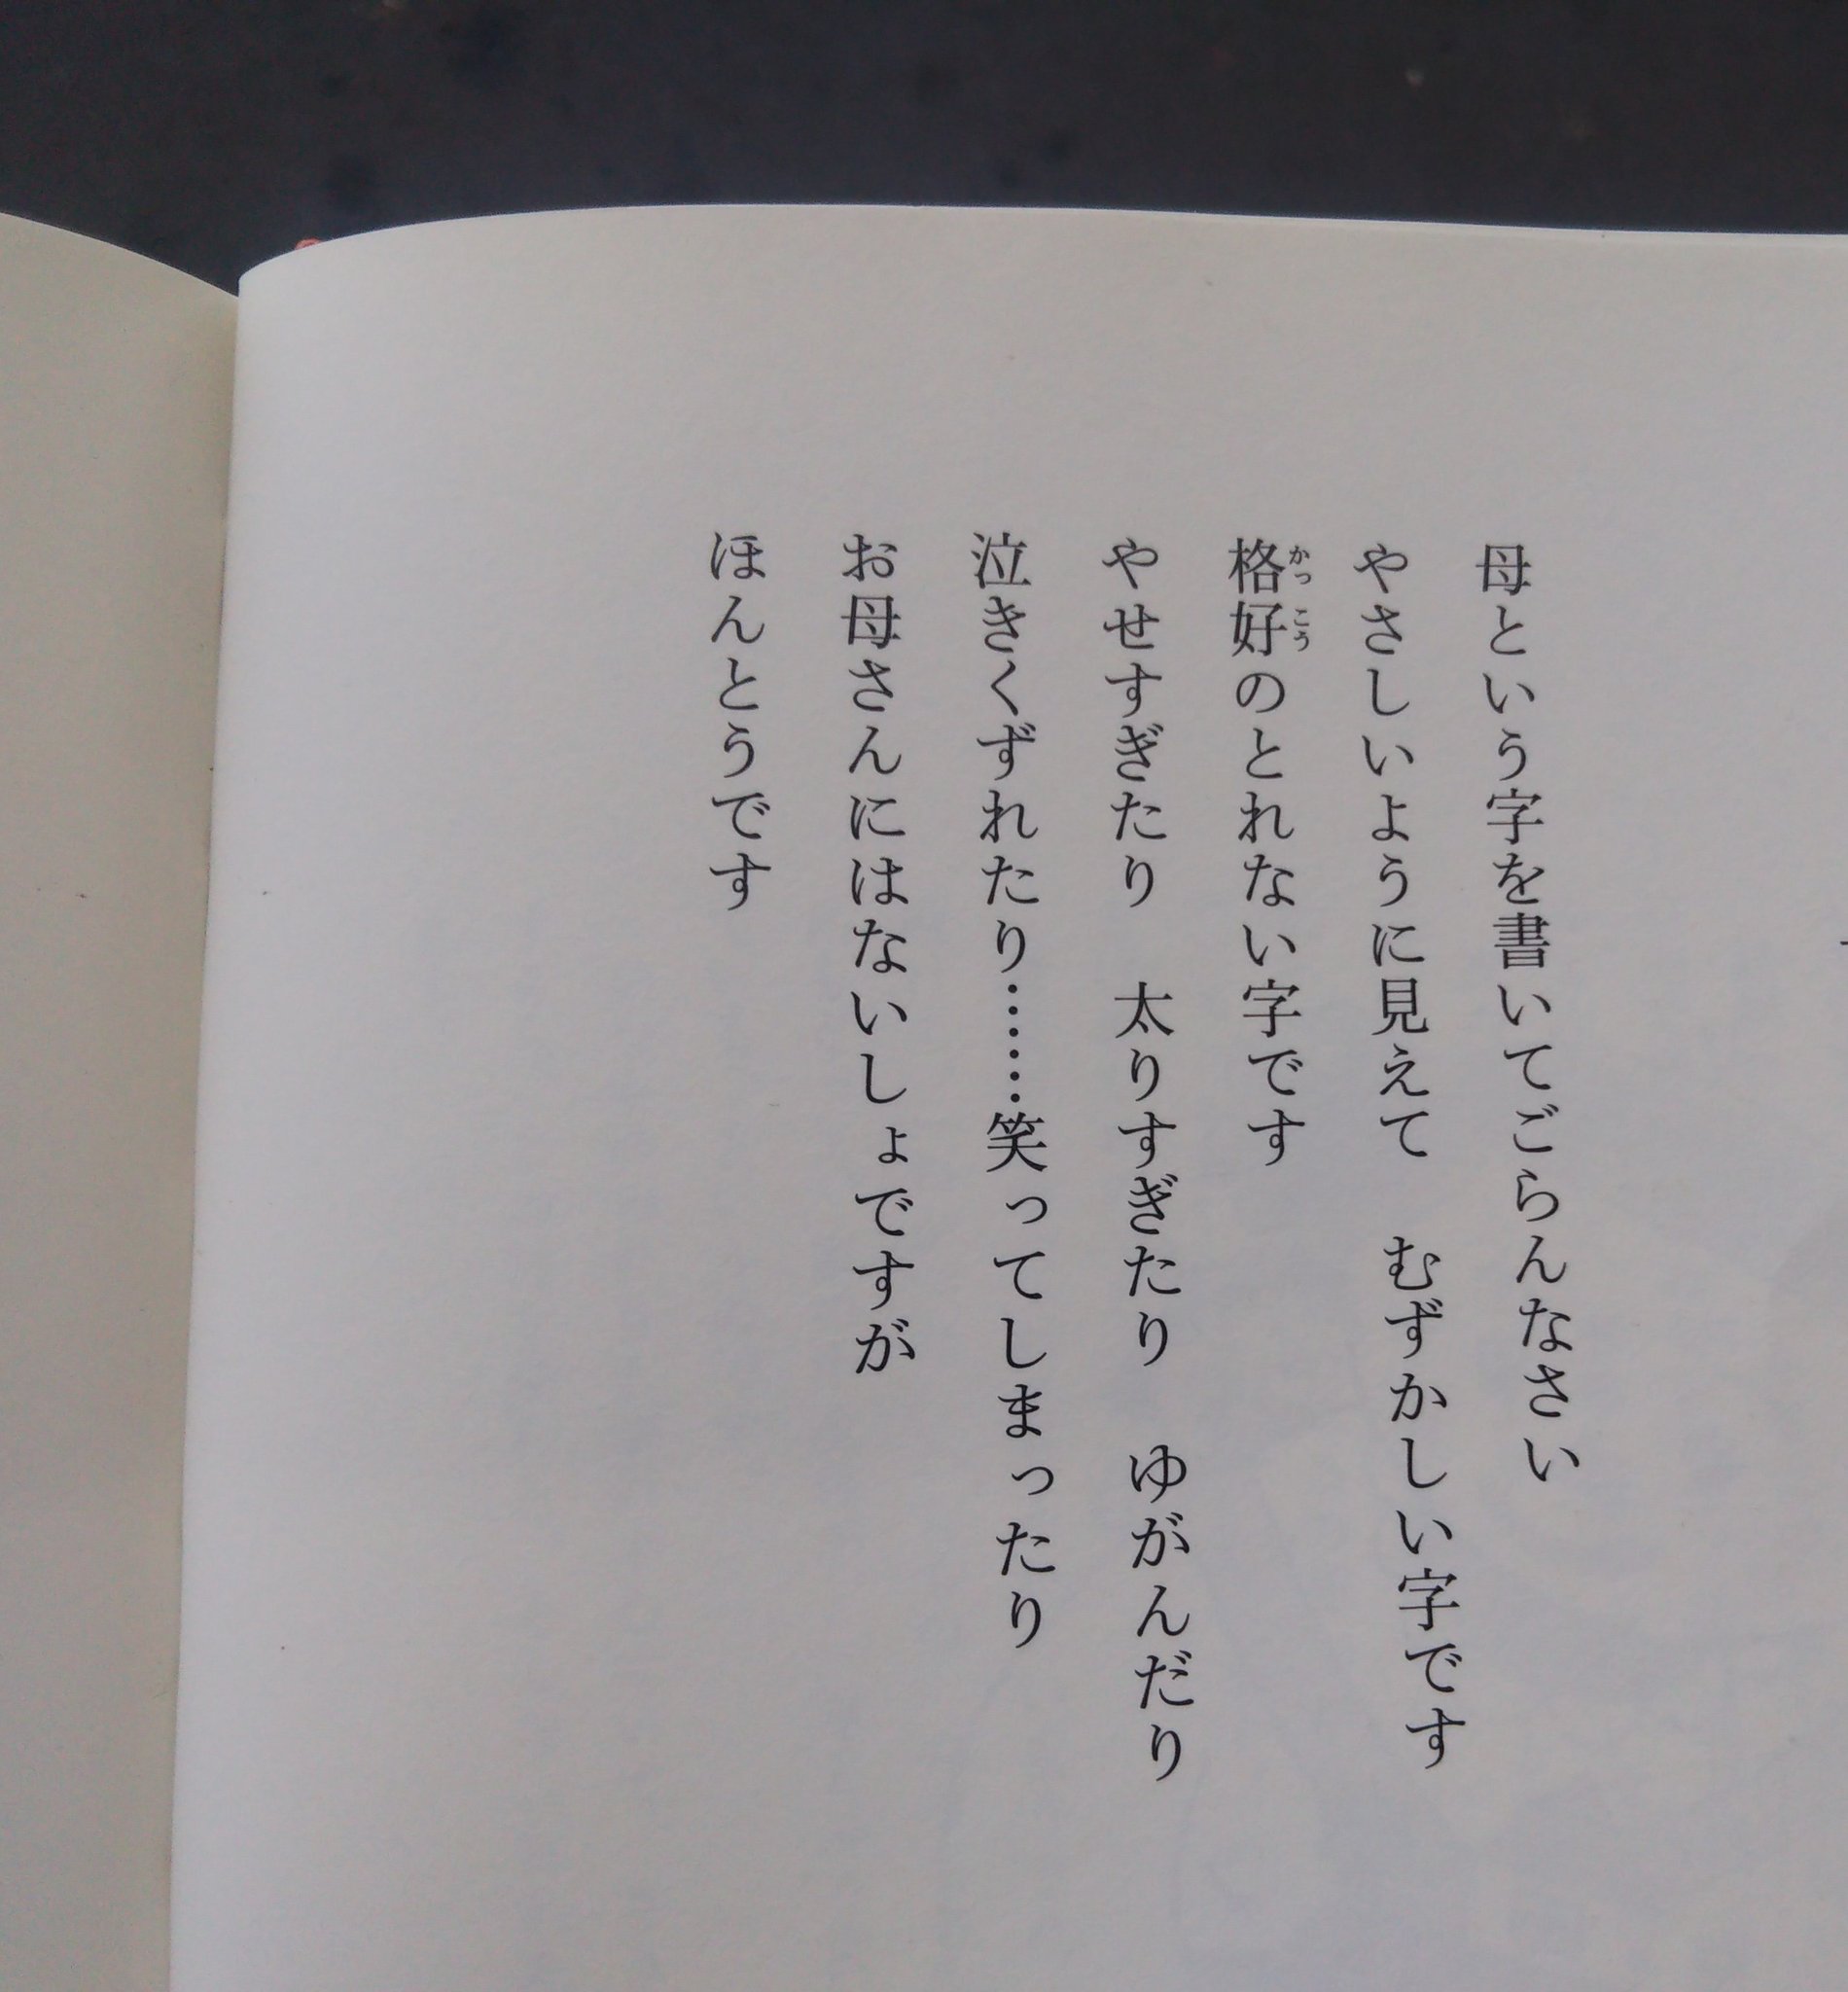 母という字を書いてごらんなさい
やさしいように見えて　むずかしい字です
格好のとれない字です
かっこう
やせすぎたり　太りすぎたり　ゆがんだり
泣きくずれたり……笑ってしまったり
お母さんにはないしょですが
ほんとうです